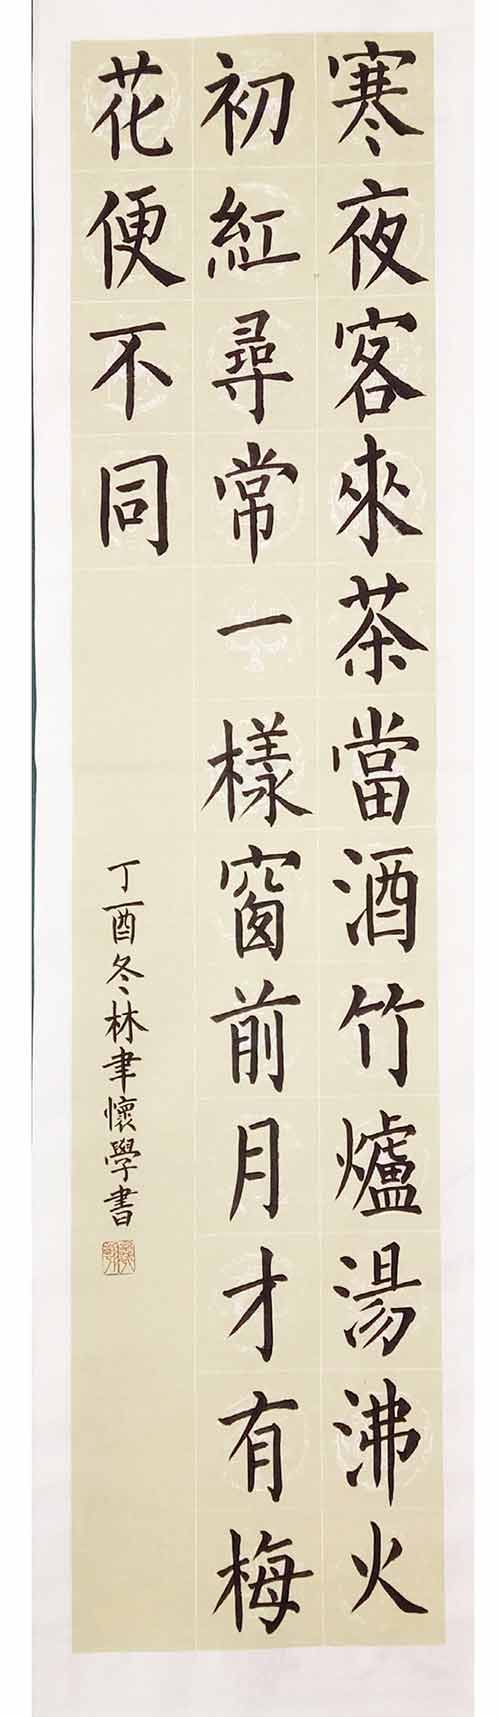 寒夜客來茶當酒竹爐湯沸火
初紅尋常一樣窗前月才有梅
花便不同
丁酉冬林聿懷學書